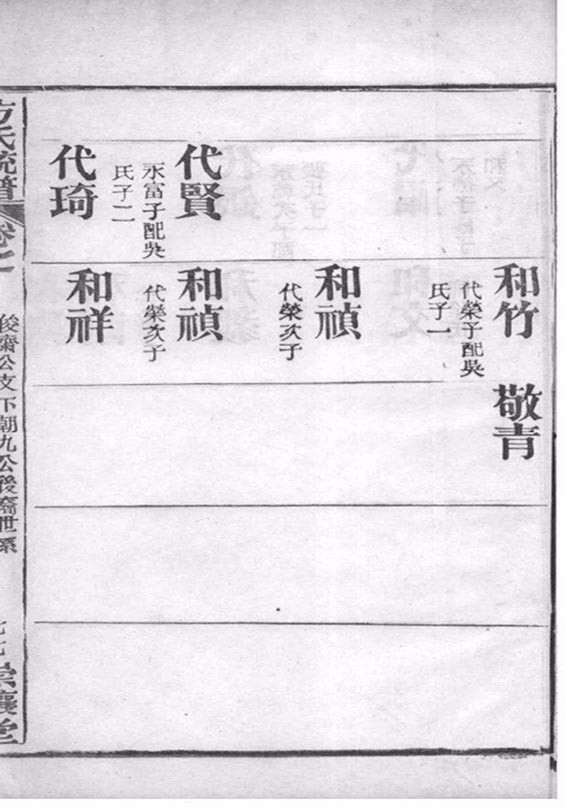 和竹
代榮子配吳
氏子一
敬青
和禎
代榮次子
代賢
永富子配吳
氏子二
和禎
代榮次子
代琦
和祥
方氏統譜
卷之一
俊齋公支下朝九公後裔世系
崇讓堂